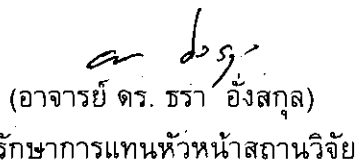 (อาจารย์ ดร. ธรา อั่งสกุล)
รักษาการแทนหัวหน้าสถานวิจัย